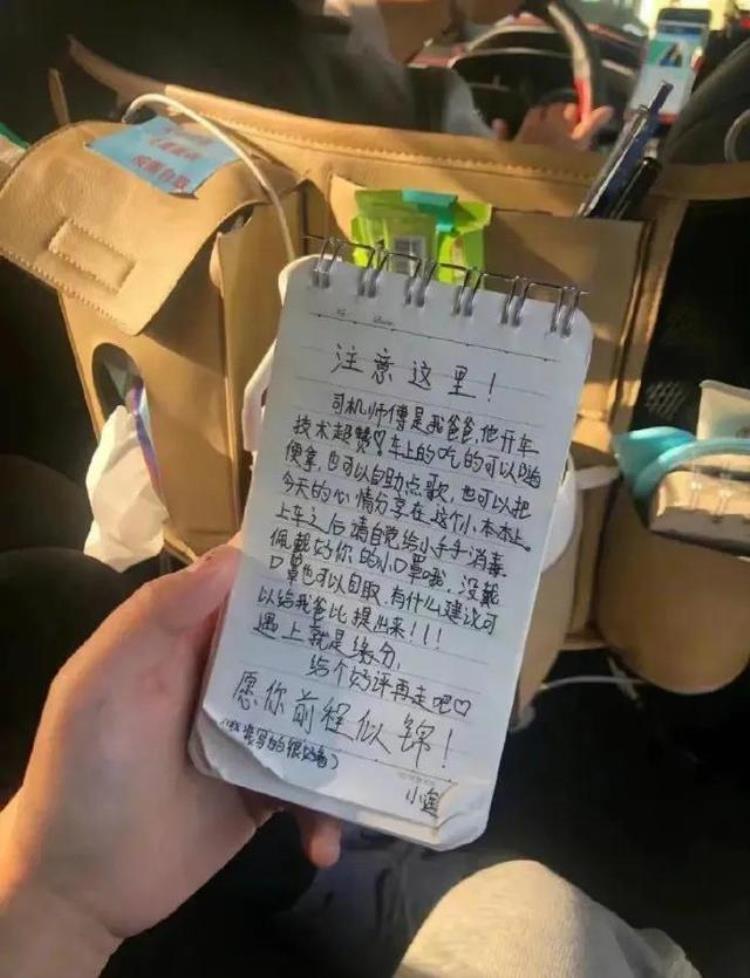 注意这里！
司机师傅是我爸爸,他开车
技术超赞♡车上的吃的可以随
便拿,也可以自助点歌,也可以把
今天的心情分享在这个小本本上。
上车之后请自觉给小手手消毒
佩戴好你的小口罩哦,没戴
口罩也可以自取.有什么建议可
以给我爸比提出来!!!
遇上就是缘分,
给个好评再走吧♡
愿你前程似锦！